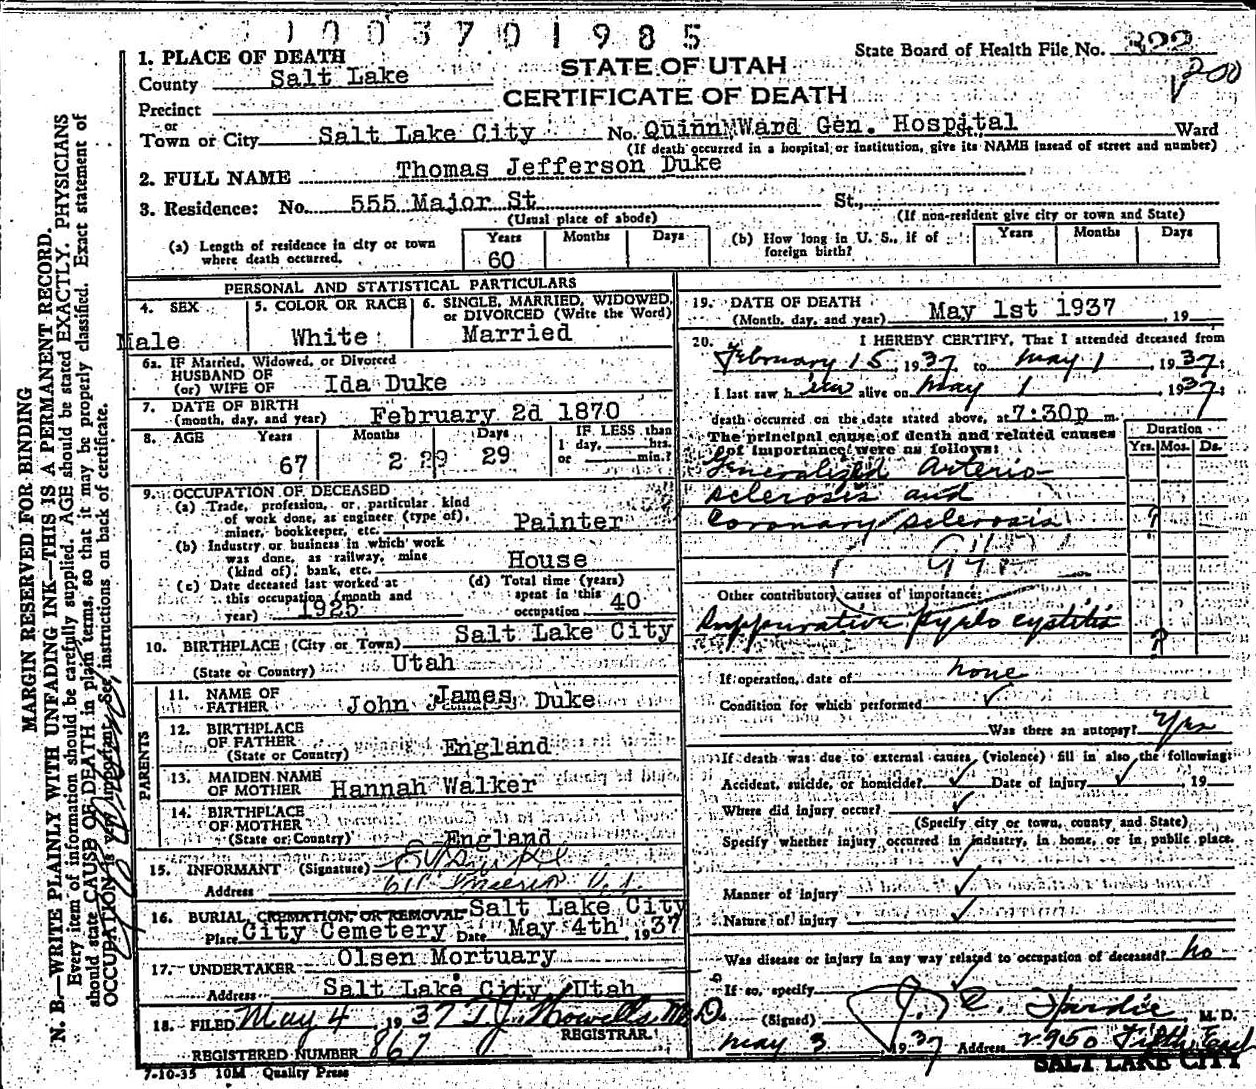 1003701985
State Board of Health File No. 322
STATE OF UTAH
CERTIFICATE OF DEATH
1. PLACE OF DEATH
County Salt Lake
Precinct
or
Town or City Salt Lake City No. Quinn Ward Gen. Hospital St., Ward
(If death occurred in a hospital or institution, give its NAME insead of street and number)
2. FULL NAME Thomas Jefferson Duke
3. Residence: No. 555 Major St St.,
(Usual place of abode) (If non-resident give city or town and State)
(a) Length of residence in city or town where death occurred. Years 60 Months Days
(b) How long in U. S., if of foreign birth? Years Months Days
PERSONAL AND STATISTICAL PARTICULARS
4. SEX Male
5. COLOR OR RACE White
6. SINGLE, MARRIED, WIDOWED, or DIVORCED (Write the Word) Married
6a. IF Married, Widowed, or Divorced
HUSBAND OF
(or) WIFE OF Ida Duke
7. DATE OF BIRTH
(month, day, and year) February 2d 1870
8. AGE Years 67 Months 2 29 Days 29
IF LESS than 1 day, hrs. or min.?
9. OCCUPATION OF DECEASED
(a) Trade, profession, or particular kind
of work done, as engineer (type of),
miner, bookkeeper, etc. Painter
(b) Industry or business in which work
was done, as railway, mine
(kind of), bank, etc. House
(c) Date deceased last worked at
this occupation (month and
year) 1925
(d) Total time (years)
spent in this
occupation 40
10. BIRTHPLACE (City or Town) Salt Lake City
(State or Country) Utah
PARENTS
11. NAME OF
FATHER John James Duke
12. BIRTHPLACE
OF FATHER
(State or Country) England
13. MAIDEN NAME
OF MOTHER Hannah Walker
14. BIRTHPLACE
OF MOTHER
(State or Country) England
15. INFORMANT (Signature)
Address
16. BURIAL, CREMATION, OR REMOVAL Salt Lake City
Place City Cemetery Date May 4th, 1937
17. UNDERTAKER Olsen Mortuary
Address Salt Lake City Utah
18. FILED May 4, 1937 T.J. Howells M.D.
REGISTRAR.
REGISTERED NUMBER 867
7-10-35 10M Quality Press
19. DATE OF DEATH
(Month, day, and year) May 1st 1937, 19
20. I HEREBY CERTIFY, That I attended deceased from
February 15, 1937 to May 1, 1937;
I last saw him alive on May 1 1937;
death occurred on the date stated above, at 7:30p m.
The principal cause of death and related causes
of importance were as follows:
Duration
Yrs. Mos. Ds.
Generalized Arterio-
sclerosis and
Coronary sclerosis ?
Other contributory causes of importance:
Suppurative pyelo cystitis
?
If operation, date of none
Condition for which performed
Was there an autopsy? Yes
If death was due to external causes, (violence) fill in also the following:
Accident, suicide, or homicide? Date of injury, 19
Where did injury occur?
(Specify city or town, county and State)
Specify whether injury occurred in industry, in home, or in public place.
Manner of injury
Nature of injury
Was disease or injury in any way related to occupation of deceased? No
If so, specify
(Signed) J. C. Hardie M. D.
May 3 1937 Address 2950 Fifth East
SALT LAKE CITY
MARGIN RESERVED FOR BINDING
N. B.—WRITE PLAINLY WITH UNFADING INK—THIS IS A PERMANENT RECORD.
Every item of information should be carefully supplied. AGE should be stated EXACTLY. PHYSICIANS
should state CAUSE OF DEATH in plain terms, so that it may be properly classified. Exact statement of
OCCUPATION is very important. See instructions on back of certificate.